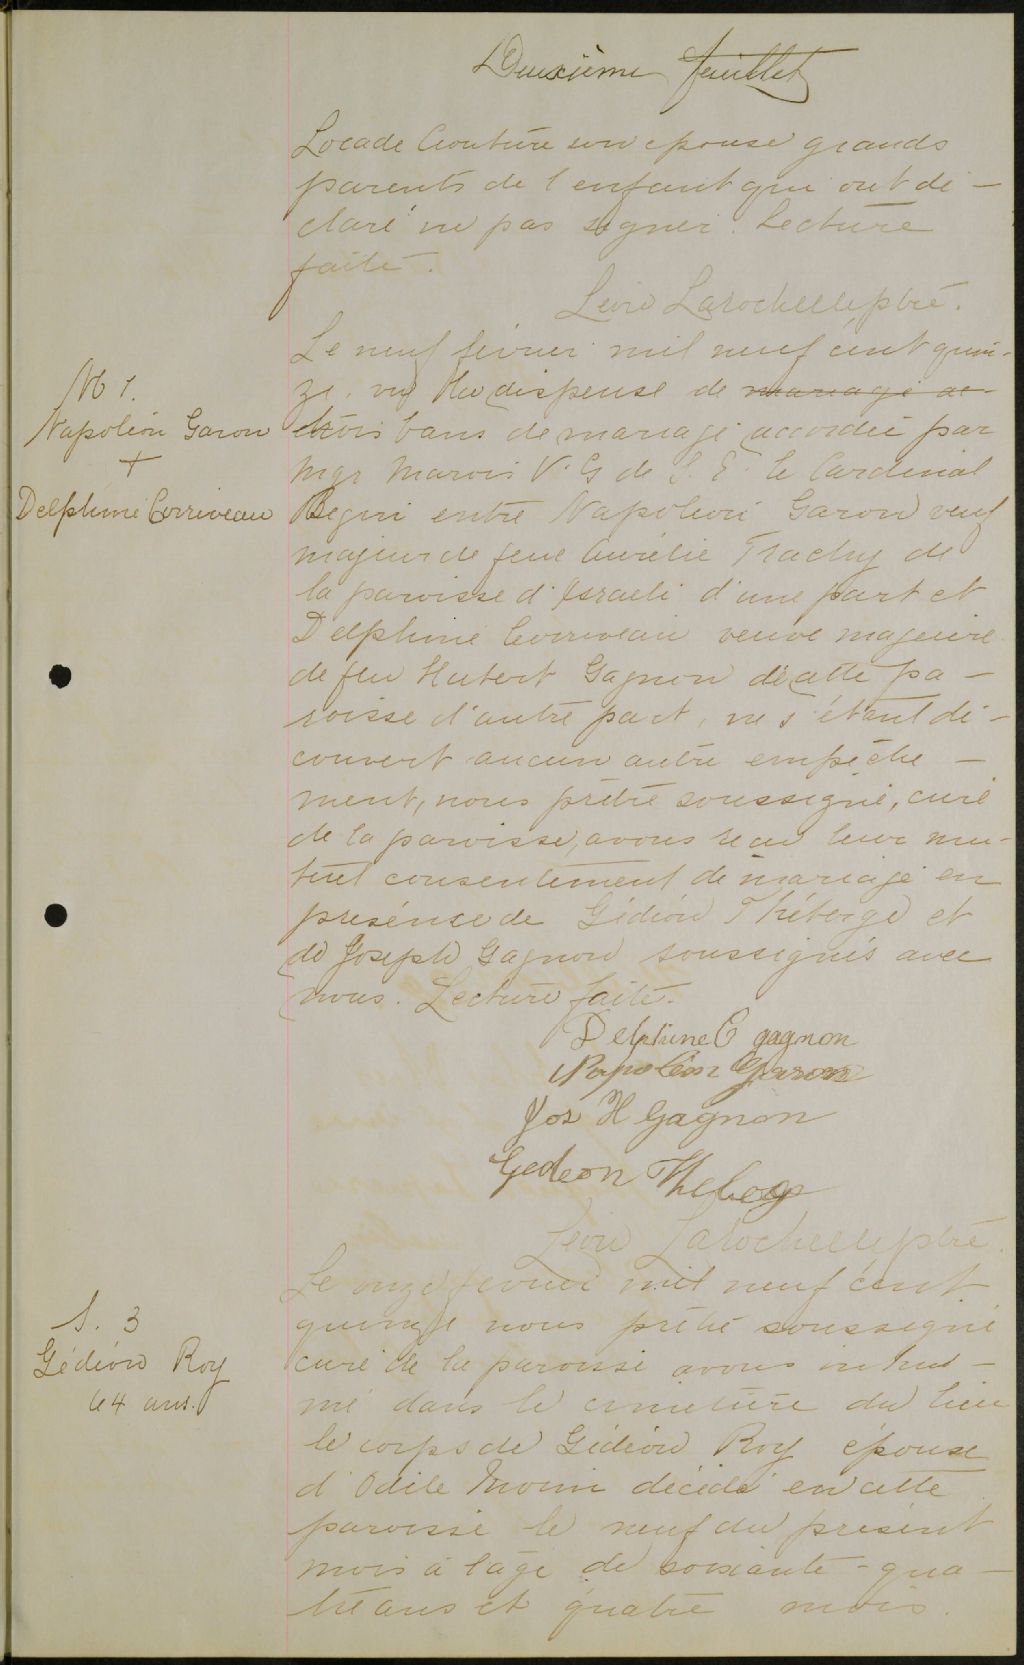 Deuxième feuillet
Locade Couture son epouse grands
parents de l'enfant qui ont dé-
claré ne pas signer. Lecture
faite.
Léon Larochelle ptre.
M 1.
Napoléon Garon
+
Delphine Corriveau
Le neuf février mil neuf cent quin-
ze, vu la dispense de mariage de
trois bans de mariage accordée par
Mgr Marois V. G de S. E le Cardinal
Begin entre Napoléon Garon veuf
majeur de feue Aurélie Trachy de
la paroisse d'Israeli d'une part et
Delphine Corriveau veuve majeure
de feu Hubert Gagnon de cette pa-
roisse d'autre part, ne s'étant dé-
couvert aucun autre empêche-
ment, nous prêtre soussigné, curé
de la paroisse, avons recu leur mu-
tuel consentement de mariage en
présence de Gédéon Théberge et
de Joseph Gagnon soussignés avec
nous. Lecture faite.
Delphine C gagnon
Napoléon Garon
Jos H Gagnon
Gedeon Theberge
Léon Larochelle ptre.
S. 3
Gédéon Roy
64 ans.
Le onze février mil neuf cent
quinze nous prêtre soussigné
curé de la paroisse avons inhu-
mé dans le cimetière du lieu
le corps de Gédéon Roy épouse
d'Odile Morin décédé en cette
paroisse le neuf du présent
mois à l'âge de soixante-qua-
tre ans et quatre mois.